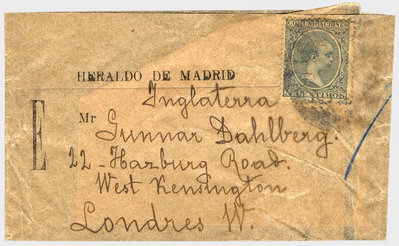 COMUNICACIONES
CENTIMOS
HERALDO DE MADRID
Inglaterra
E
Mr Gunnar Dahlberg.
22 - Hazburg Road.
West Kensington
Londres W.